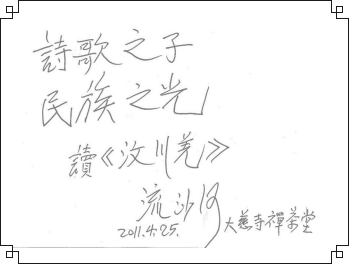 詩歌之子
民族之光
讀《汶川羌》
流沙河
2011.4.25.
大慈寺禪茶堂